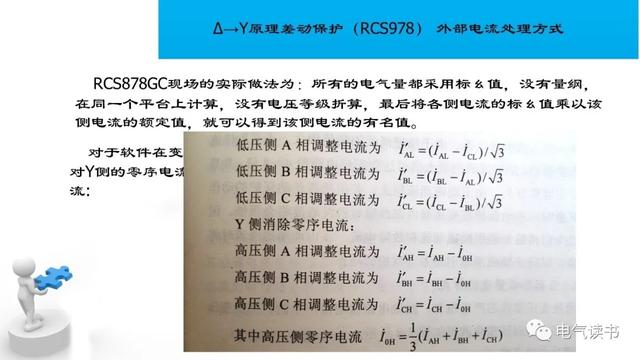 Δ→Y原理差动保护（RCS978） 外部电流处理方式
RCS878GC现场的实际做法为：所有的电气量都采用标幺值，没有量纲，
在同一个平台上计算，没有电压等级折算，最后将各侧电流的标幺值乘以该
侧电流的额定值，就可以得到该侧电流的有名值。
对于软件在变
对Y侧的零序电流
流：
低压侧 A 相调整电流为 İ′AL = (İAL − İCL)/√3
低压侧 B 相调整电流为 İ′BL = (İBL − İAL)/√3
低压侧 C 相调整电流为 İ′CL = (İCL − İBL)/√3
Y 侧消除零序电流：
高压侧 A 相调整电流为 İ′AH = İAH − İ0H
高压侧 B 相调整电流为 İ′BH = İBH − İ0H
高压侧 C 相调整电流为 İ′CH = İCH − İ0H
其中高压侧零序电流 İ0H = 1/3(İAH + İBH + İCH)
电气读书